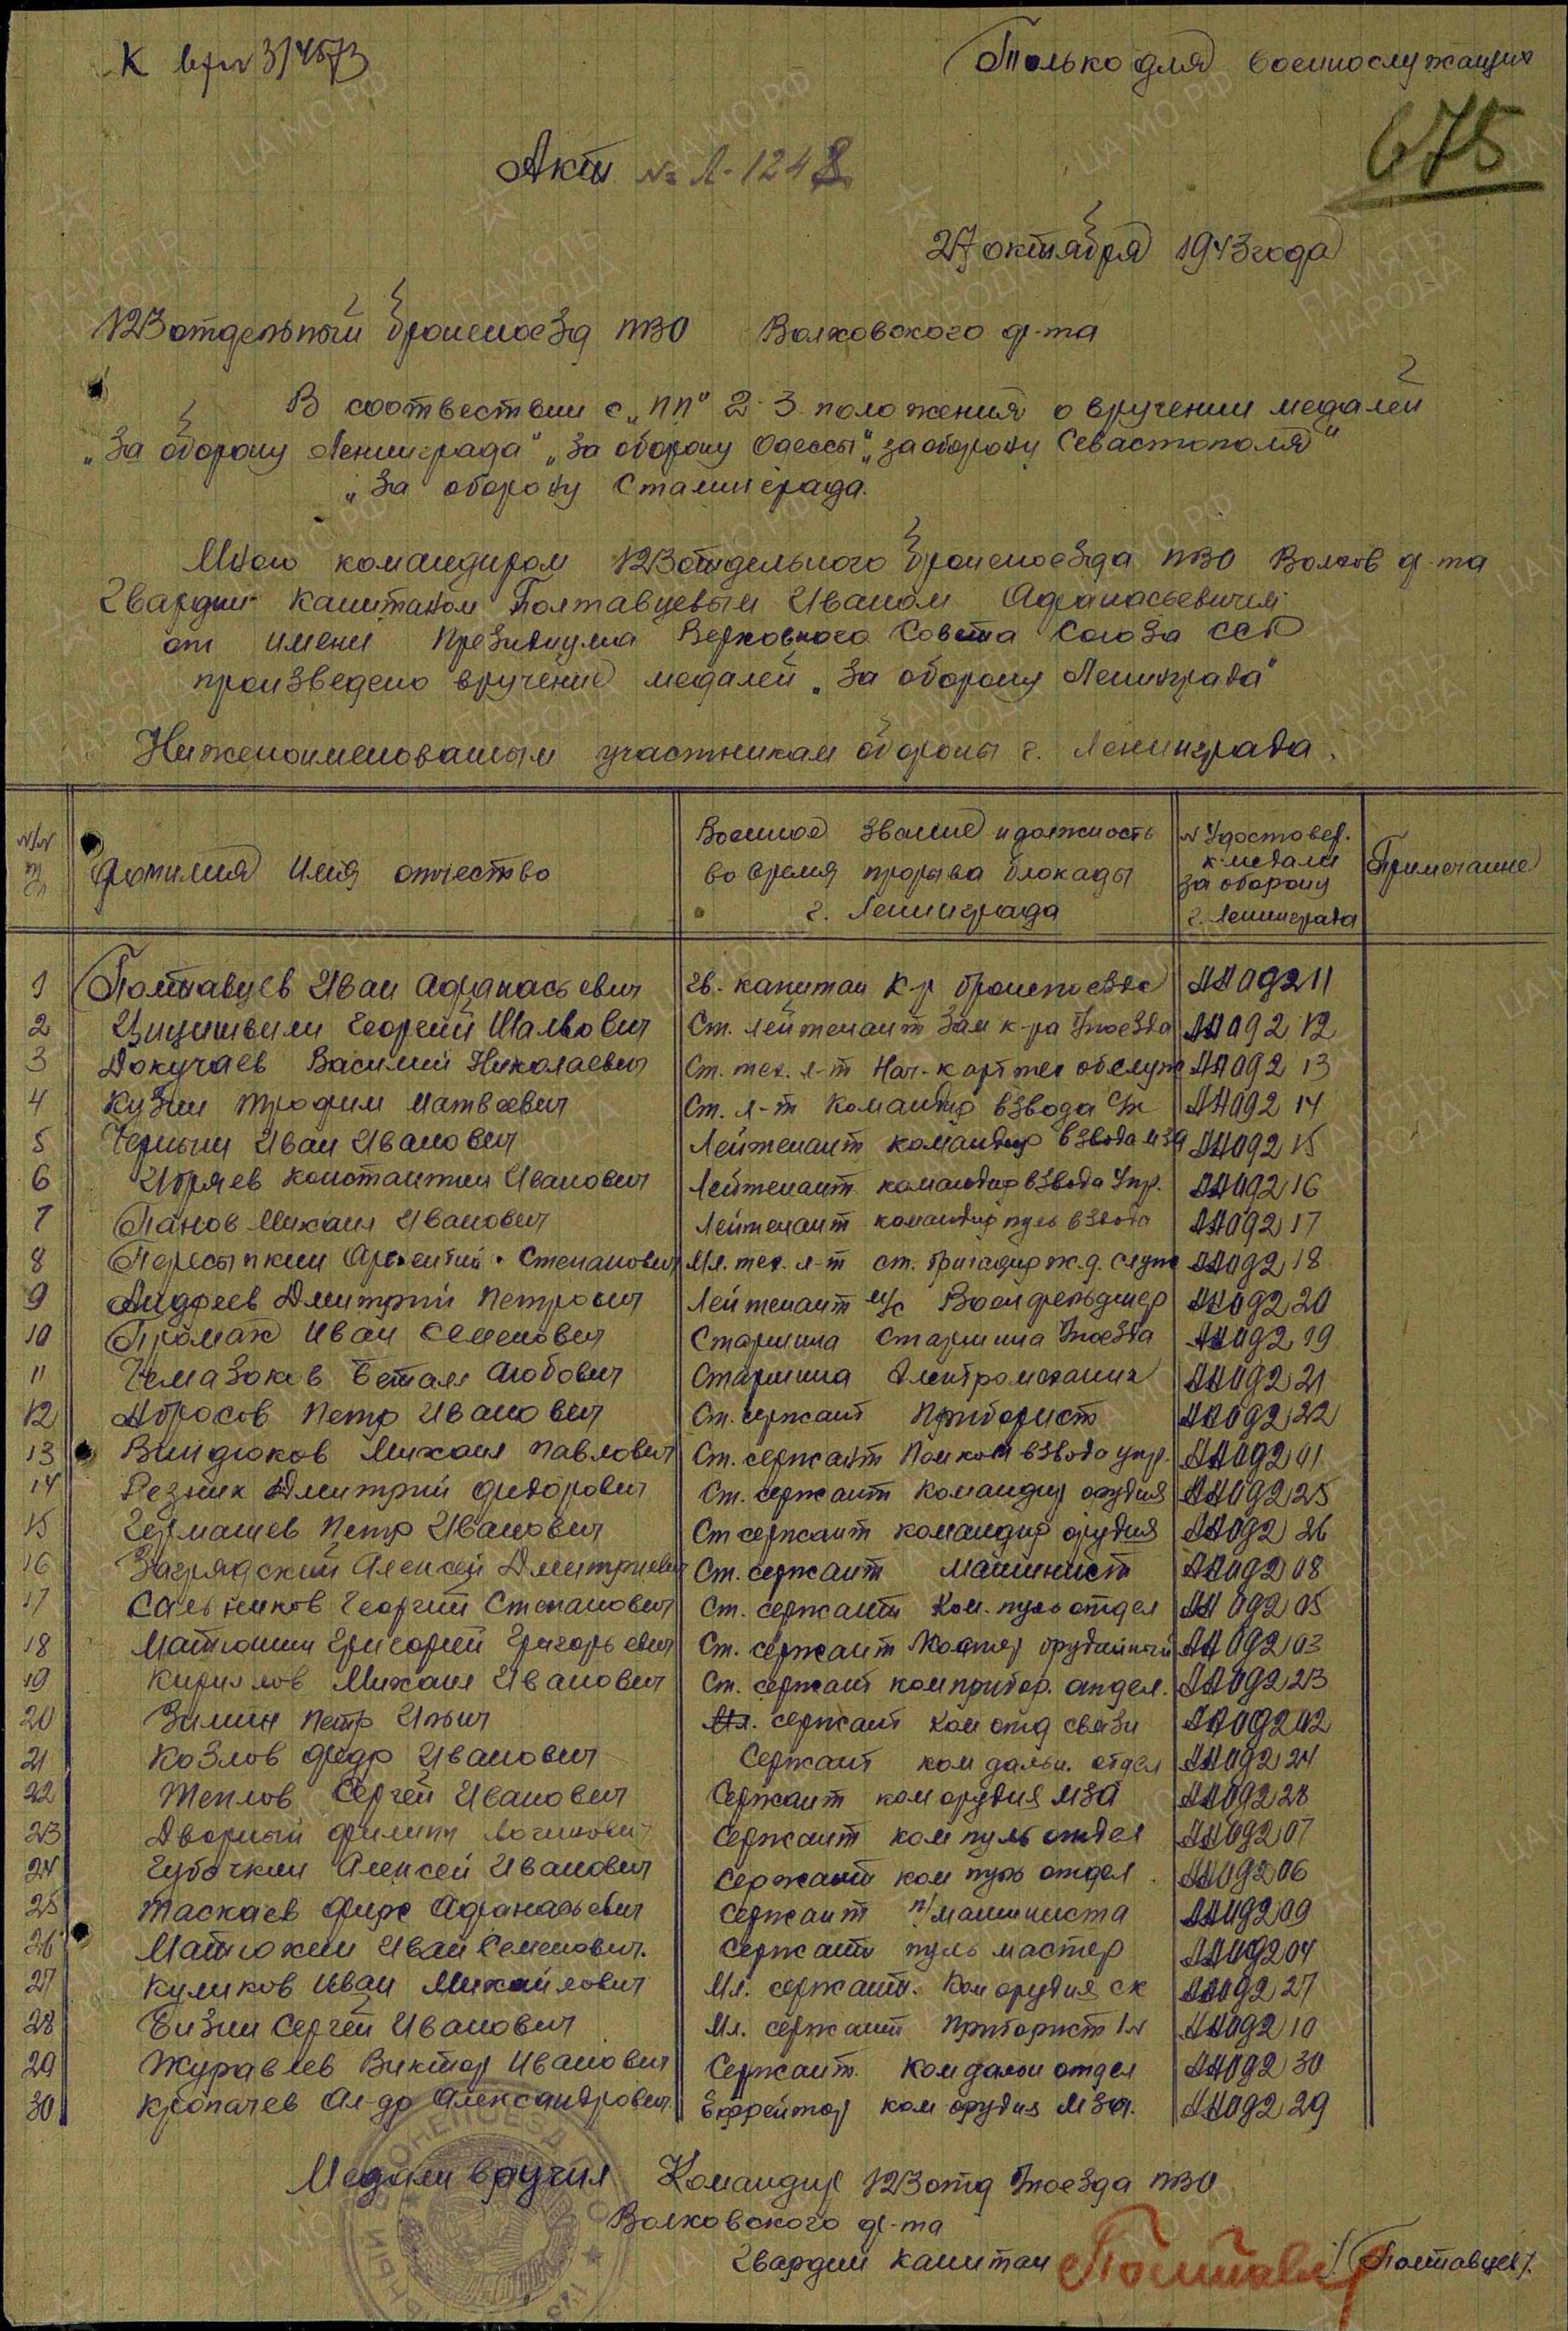 К вх№ 3/4573
Только для военнослужащих
675
Акт № Л-1248
27 октября 1943 года
123 отдельный бронепоезд ПВО Волховского ф-та
В соотвествии с „ПП" 2-3 положения о вручении медалей
„За оборону Ленинграда" „За оборону Одессы" „За оборону Севастополя"
„За оборону Сталинграда.
Мною командиром 123 отдельного бронепоезда ПВО Волхов ф-та
Гвардии капитаном Полтавцевым Иваном Афанасьевичем
от имени Президиума Верховного Совета Союза ССР
произведено вручение медалей „За оборону Ленинграда"
Нижепоименованым участникам обороны г. Ленинграда.
№/№ пп Фамилия Имя отчество Военное звание и должность во время прорыва блокады г. Ленинграда № Удостовер. к медали за оборону г. Ленинграда Примечание
1 Полтавцев Иван Афанасьевич Гв. капитан К-р бронепоезда АА 09211
2 Цицишвили Георгий Шалвович Ст. лейтенант Зам к-ра б/поезда АА 09212
3 Докучаев Василий Николаевич Ст. тех. л-т Нач-к арт тех обслуж АА 09213
4 Кузин Трофим Матвеевич Ст. л-т Командир взвода АА 09214
5 Черныш Иван Иванович Лейтенант командир взвода МЗА АА 09215
6 Игряев Константин Иванович Лейтенант командир взвода Упр. АА 09216
7 Панов Михаил Иванович Лейтенант командир пуль взвода АА 09217
8 Пересыпкин Арсентий Степанович Мл. тех. л-т ст. бригадир ж.д. служ АА 09218
9 Андреев Дмитрий Петрович Лейтенант м/с Военфельдшер АА 09220
10 Промах Иван Семенович Старшина Старшина б/поезда АА 09219
11 Чемазоков Бетал Аюбович Старшина Электромеханик АА 09221
12 Абросов Петр Иванович Ст. сержант Приборист АА 09222
13 Виндюков Михаил Павлович Ст. сержант Пом ком взвода упр. АА 09201
14 Резник Дмитрий Федорович Ст. сержант Командир орудия АА 09225
15 Гермашев Петр Иванович Ст сержант командир орудия АА 09226
16 Загрядский Алексей Дмитриевич Ст. сержант Машинист АА 09208
17 Сальников Георгий Степанович Ст. сержант Ком. пуль отдел АА 09205
18 Матюшин Григорий Григорьевич Ст. сержант Мастер орудийный АА 09203
19 Кириллов Михаил Иванович Ст. сержант ком прибор. отдел. АА 09223
20 Зимин Петр Ильич сержант Ком отд связи АА 09202
21 Козлов Федр Иванович Сержант ком дальн. отдел АА 09224
22 Теплов Сергей Иванович Сержант ком орудия МЗА АА 09228
23 Дворный Филипп Логинович Сержант ком пуль отдел АА 09207
24 Губочкин Алексей Иванович Сержант ком пуль отдел АА 09206
25 Таскаев Фирс Афанасьевич Сержант п/машиниста АА 09209
26 Матюхин Иван Семенович. Сержант пуль мастер АА 09204
27 Куликов Иван Михайлович Мл. сержант. Ком орудия СК АА 09227
28 Бизин Сергей Иванович Мл. сержант Приборист 1№ АА 09210
29 Журавлев Виктор Иванович Сержант. Ком дальн отдел АА 09230
30 Кропачев Ал-др Александрович. Ефрейтор ком орудия МЗА. АА 09229
Медали вручил Командир 123 отд б/поезда ПВО
Волховского ф-та
Гвардии капитан Полтавц /Полтавцев/.